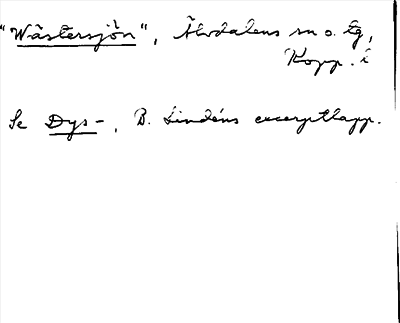 "Wästersjön", Älvdalens sn o. tg,
Kopp. i
Se Dys-, B. Lindéns excerptlapp.